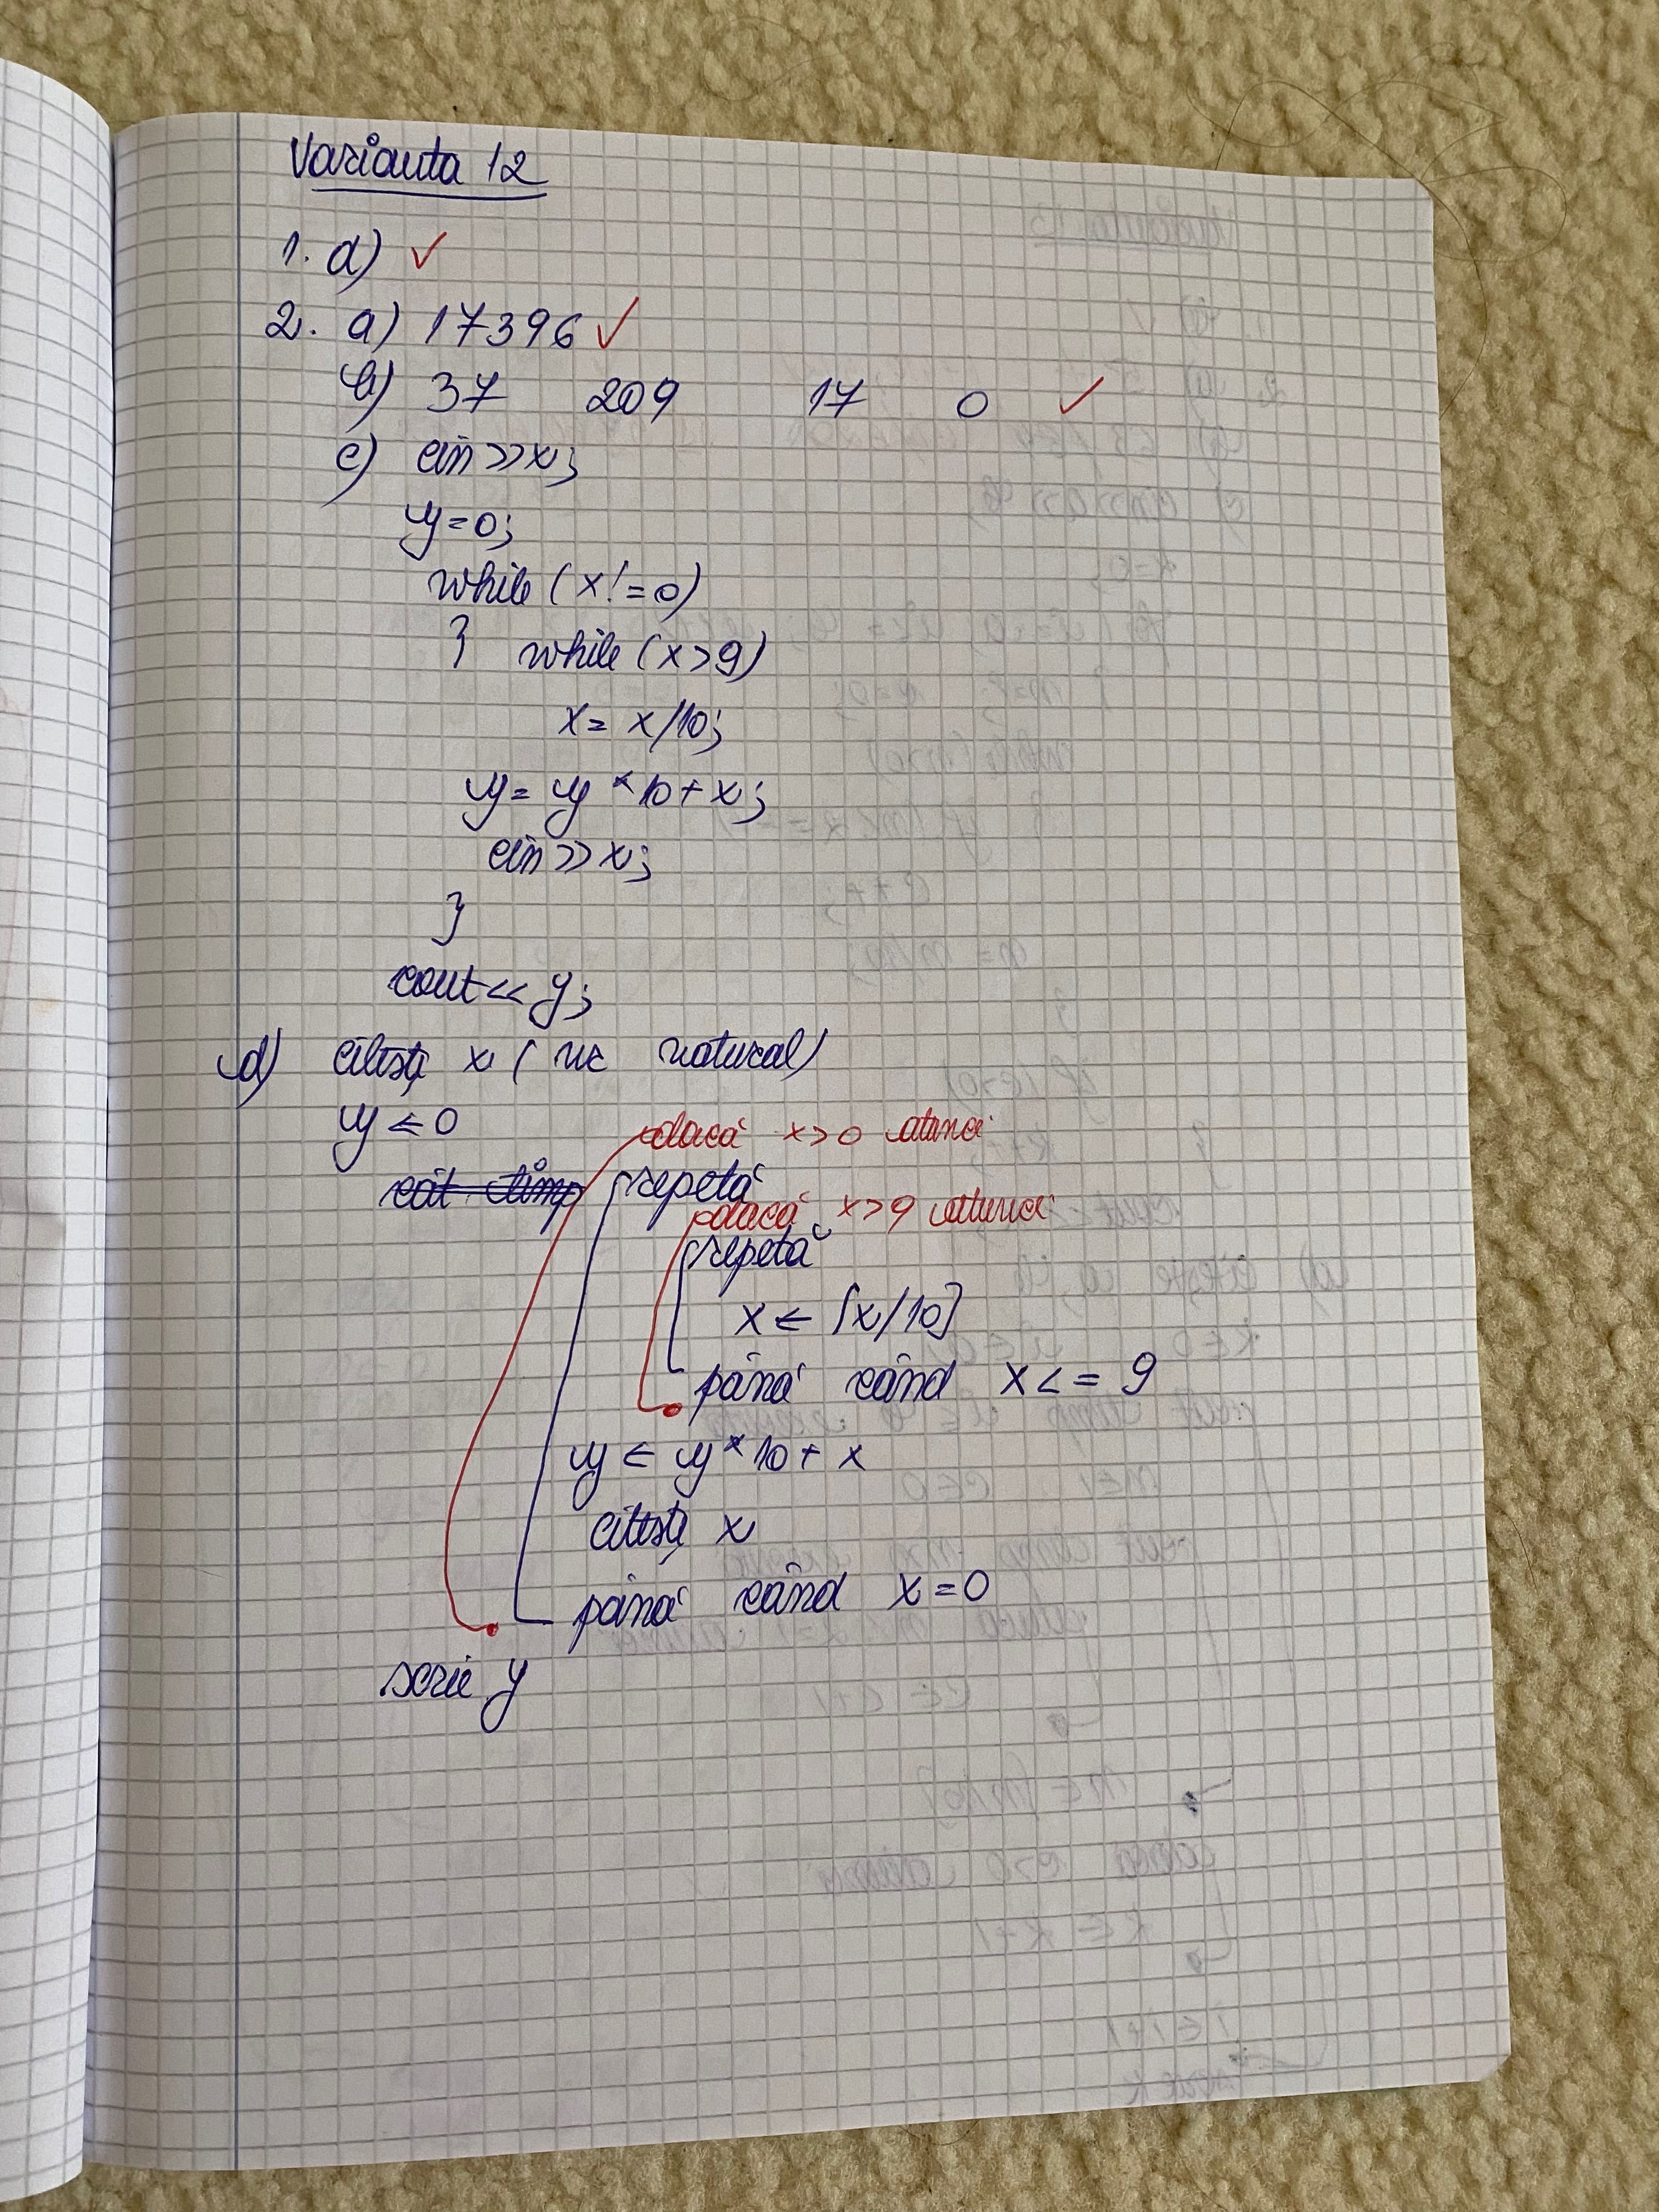 Varianta 12
1. d) ✓
2. a) 17396 ✓
b) 37 209 17 0 ✓
c) cin>>x;
y=0;
while (x!=0)
} while (x>9)
x= x/10;
y= y*10+x;
cin>>x;
}
cout<< y;
d) citește x ( nr natural)
y ← 0
dacă x>0 atunci
cât timp repetă
dacă x>9 atunci
repetă
x ← [x/10]
până când x<=9
y ← y*10+x
citește x
până când x=0
scrie y